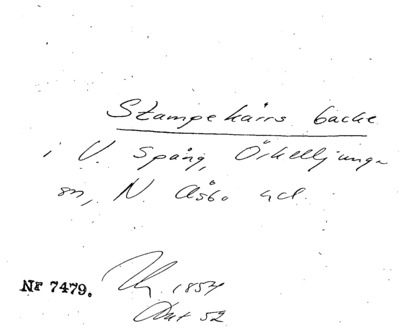 Stampekärrs backe
i V. Spång, Örkelljunga
sn, N. Åsbo hd.
Nr 7479.
1854
52